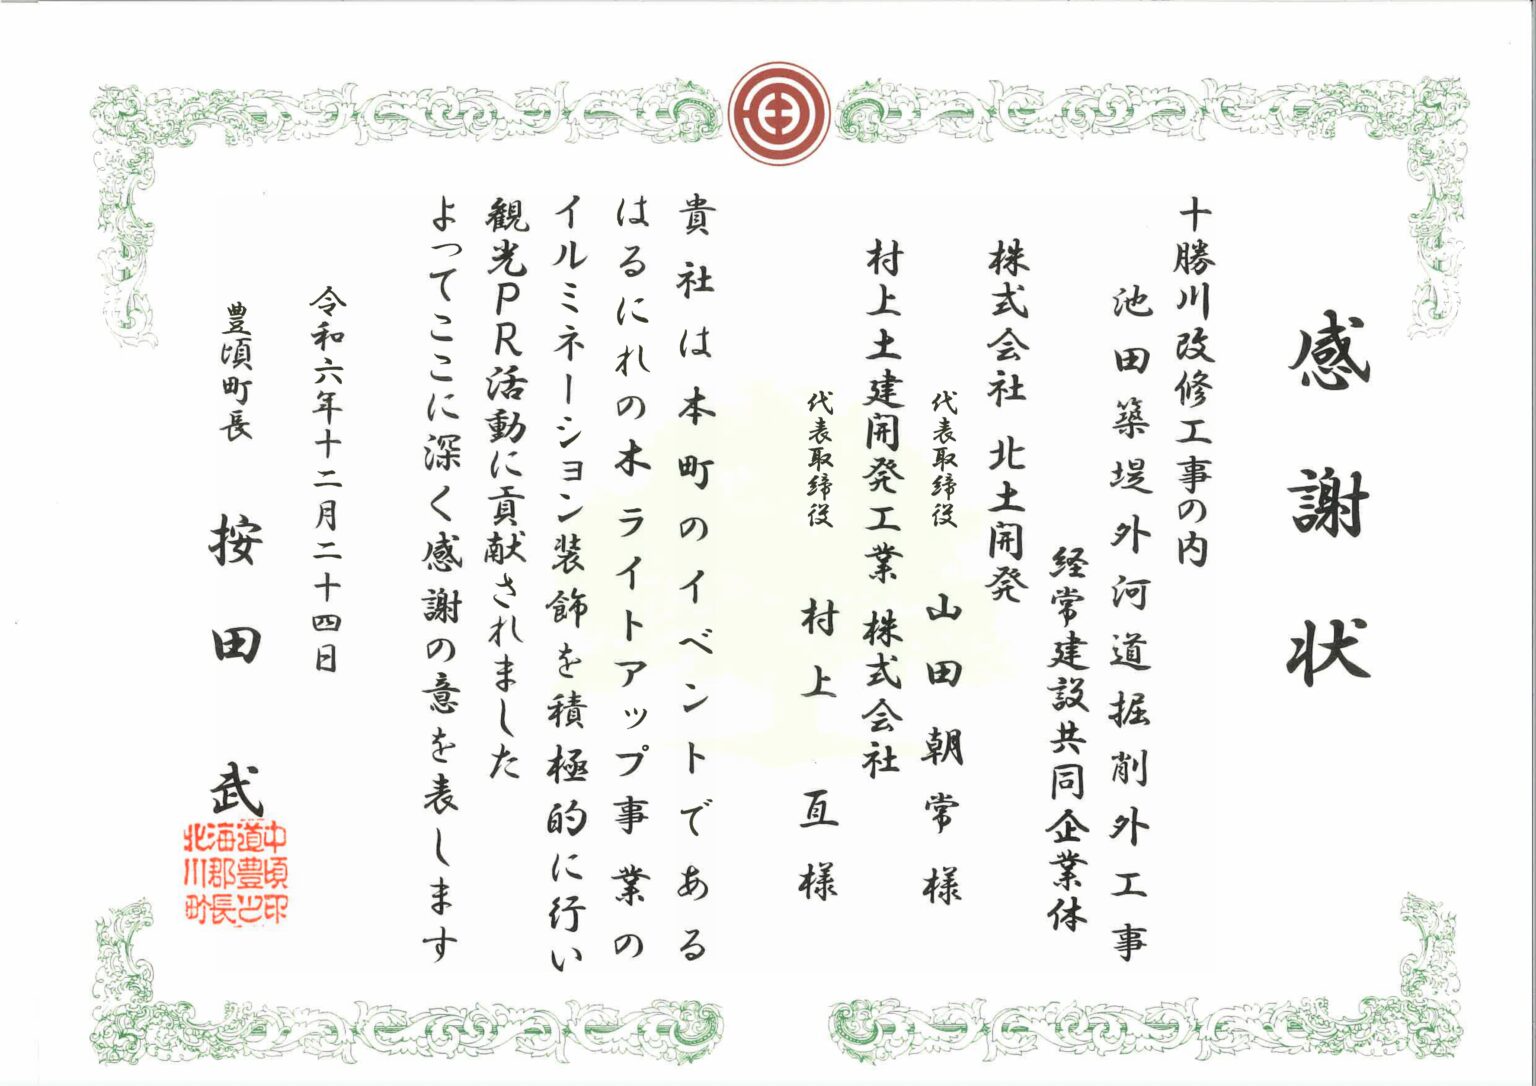 感謝状
十勝川改修工事の内
池田築堤外河道掘削外工事
経常建設共同企業体
株式会社 北土開発
代表取締役 山田朝常様
村上土建開発工業 株式会社
代表取締役 村上亘様
貴社は本町のイベントである
はるにれの木ライトアップ事業の
イルミネーション装飾を積極的に行い
観光PR活動に貢献されました
よってここに深く感謝の意を表します
令和六年十二月二十四日
豊頃町長 按田武